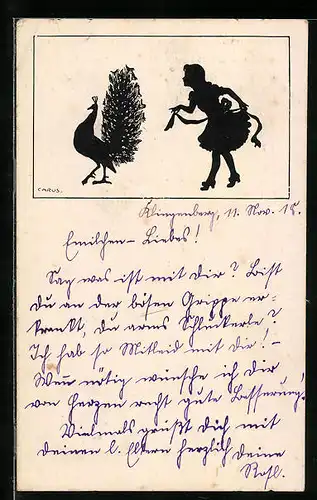 CARUS.
Klingenberg, 11. Nov. 18.
Emilchen - Liebes!
Sag was ist mit Dir? Bist
Du an der bösen Grippe er-
krankt, du armes Schluckerle?
Ich hab so Mitleid mit dir! -
Wenn nötig wünsche ich dir
von Herzen recht gute Besserung!
Vielmals grüßt Dich mit
deinen l. Eltern herzlich deine
Rosl.